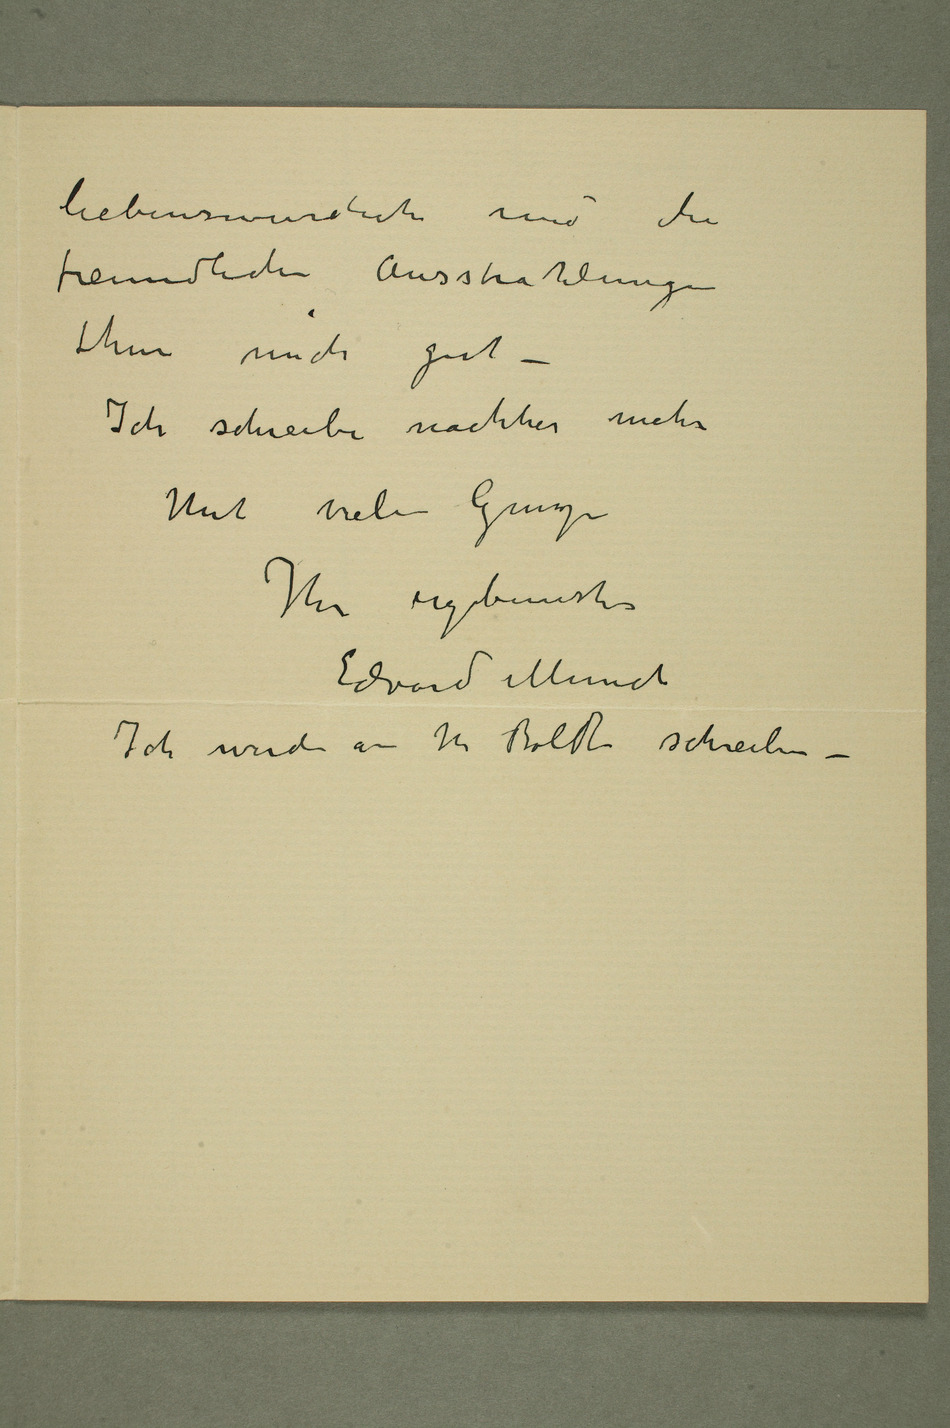 liebenswurdich und die
freundlichen Ausstrahlungen
thun mich gut –
Ich schreibe nachher mehr
Mit vielen Gruze
Ihr ergebenster
Edvard Munch
Ich werde an Hr Boldt schreiben –